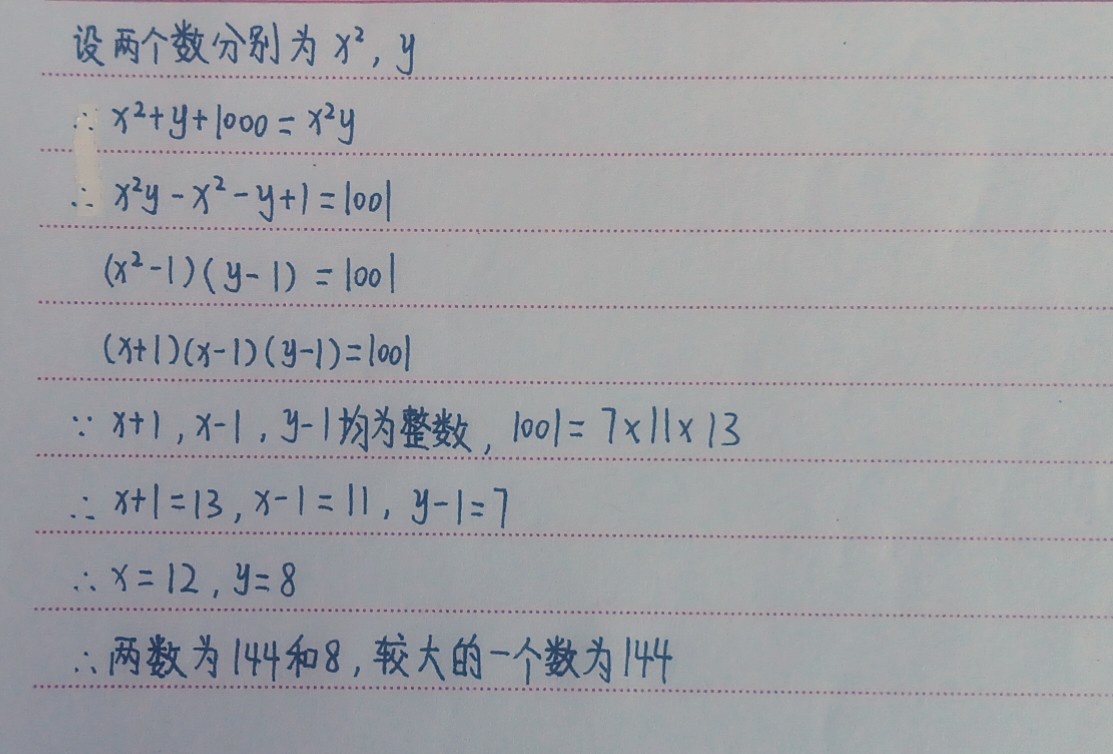 设两个数分别为 x², y
∴ x²+y+1000=x²y
∴ x²y-x²-y+1=1001
(x²-1)(y-1)=1001
(x+1)(x-1)(y-1)=1001
∵ x+1,x-1,y-1均为整数,1001=7×11×13
∴ x+1=13,x-1=11,y-1=7
∴ x=12,y=8
∴ 两数为144和8,较大的一个数为144